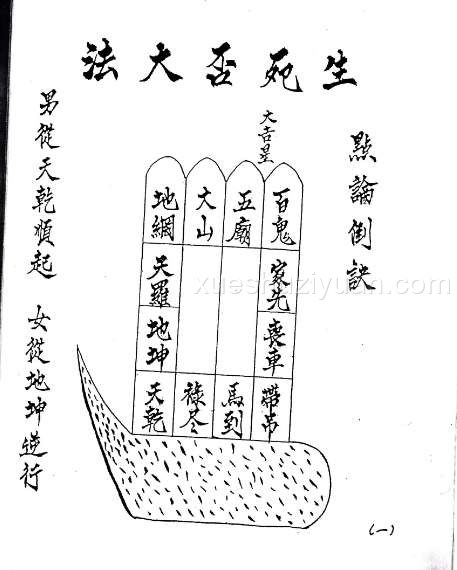 生死否大法
點論倒訣
大吉星
百鬼
五廟
大山
地網
家先
天羅
喪車
地坤
帶吊
馬到
祿尽
天乾
男從天乾順起 女從地坤逆行
xueshuziyuan.com
(一)